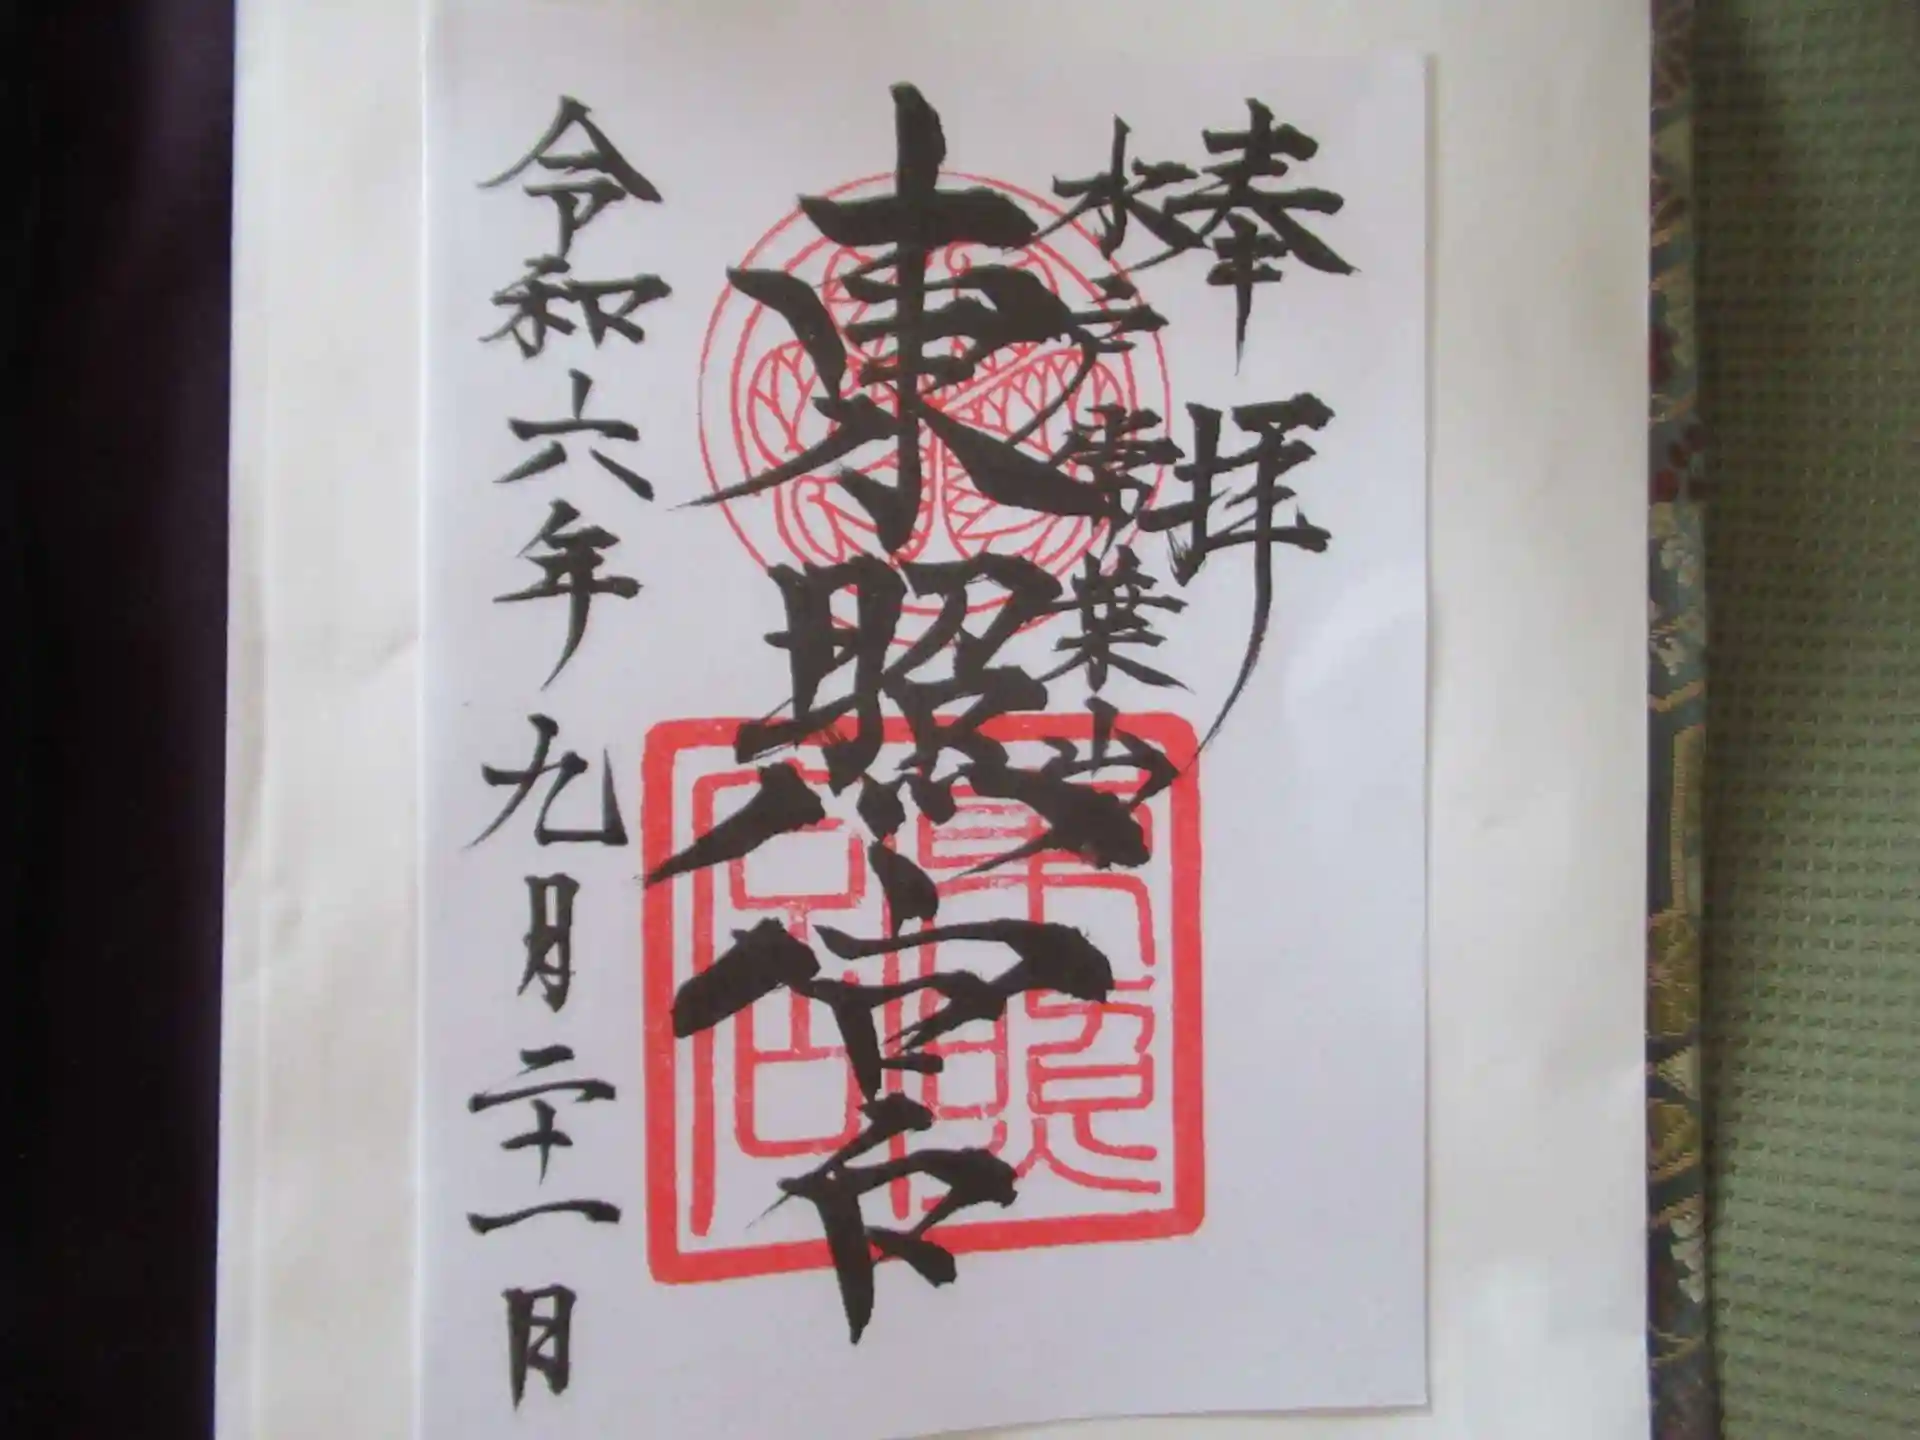 奉拝
水戸常葉山
東照宮
令和六年九月二十一日
東照宮印